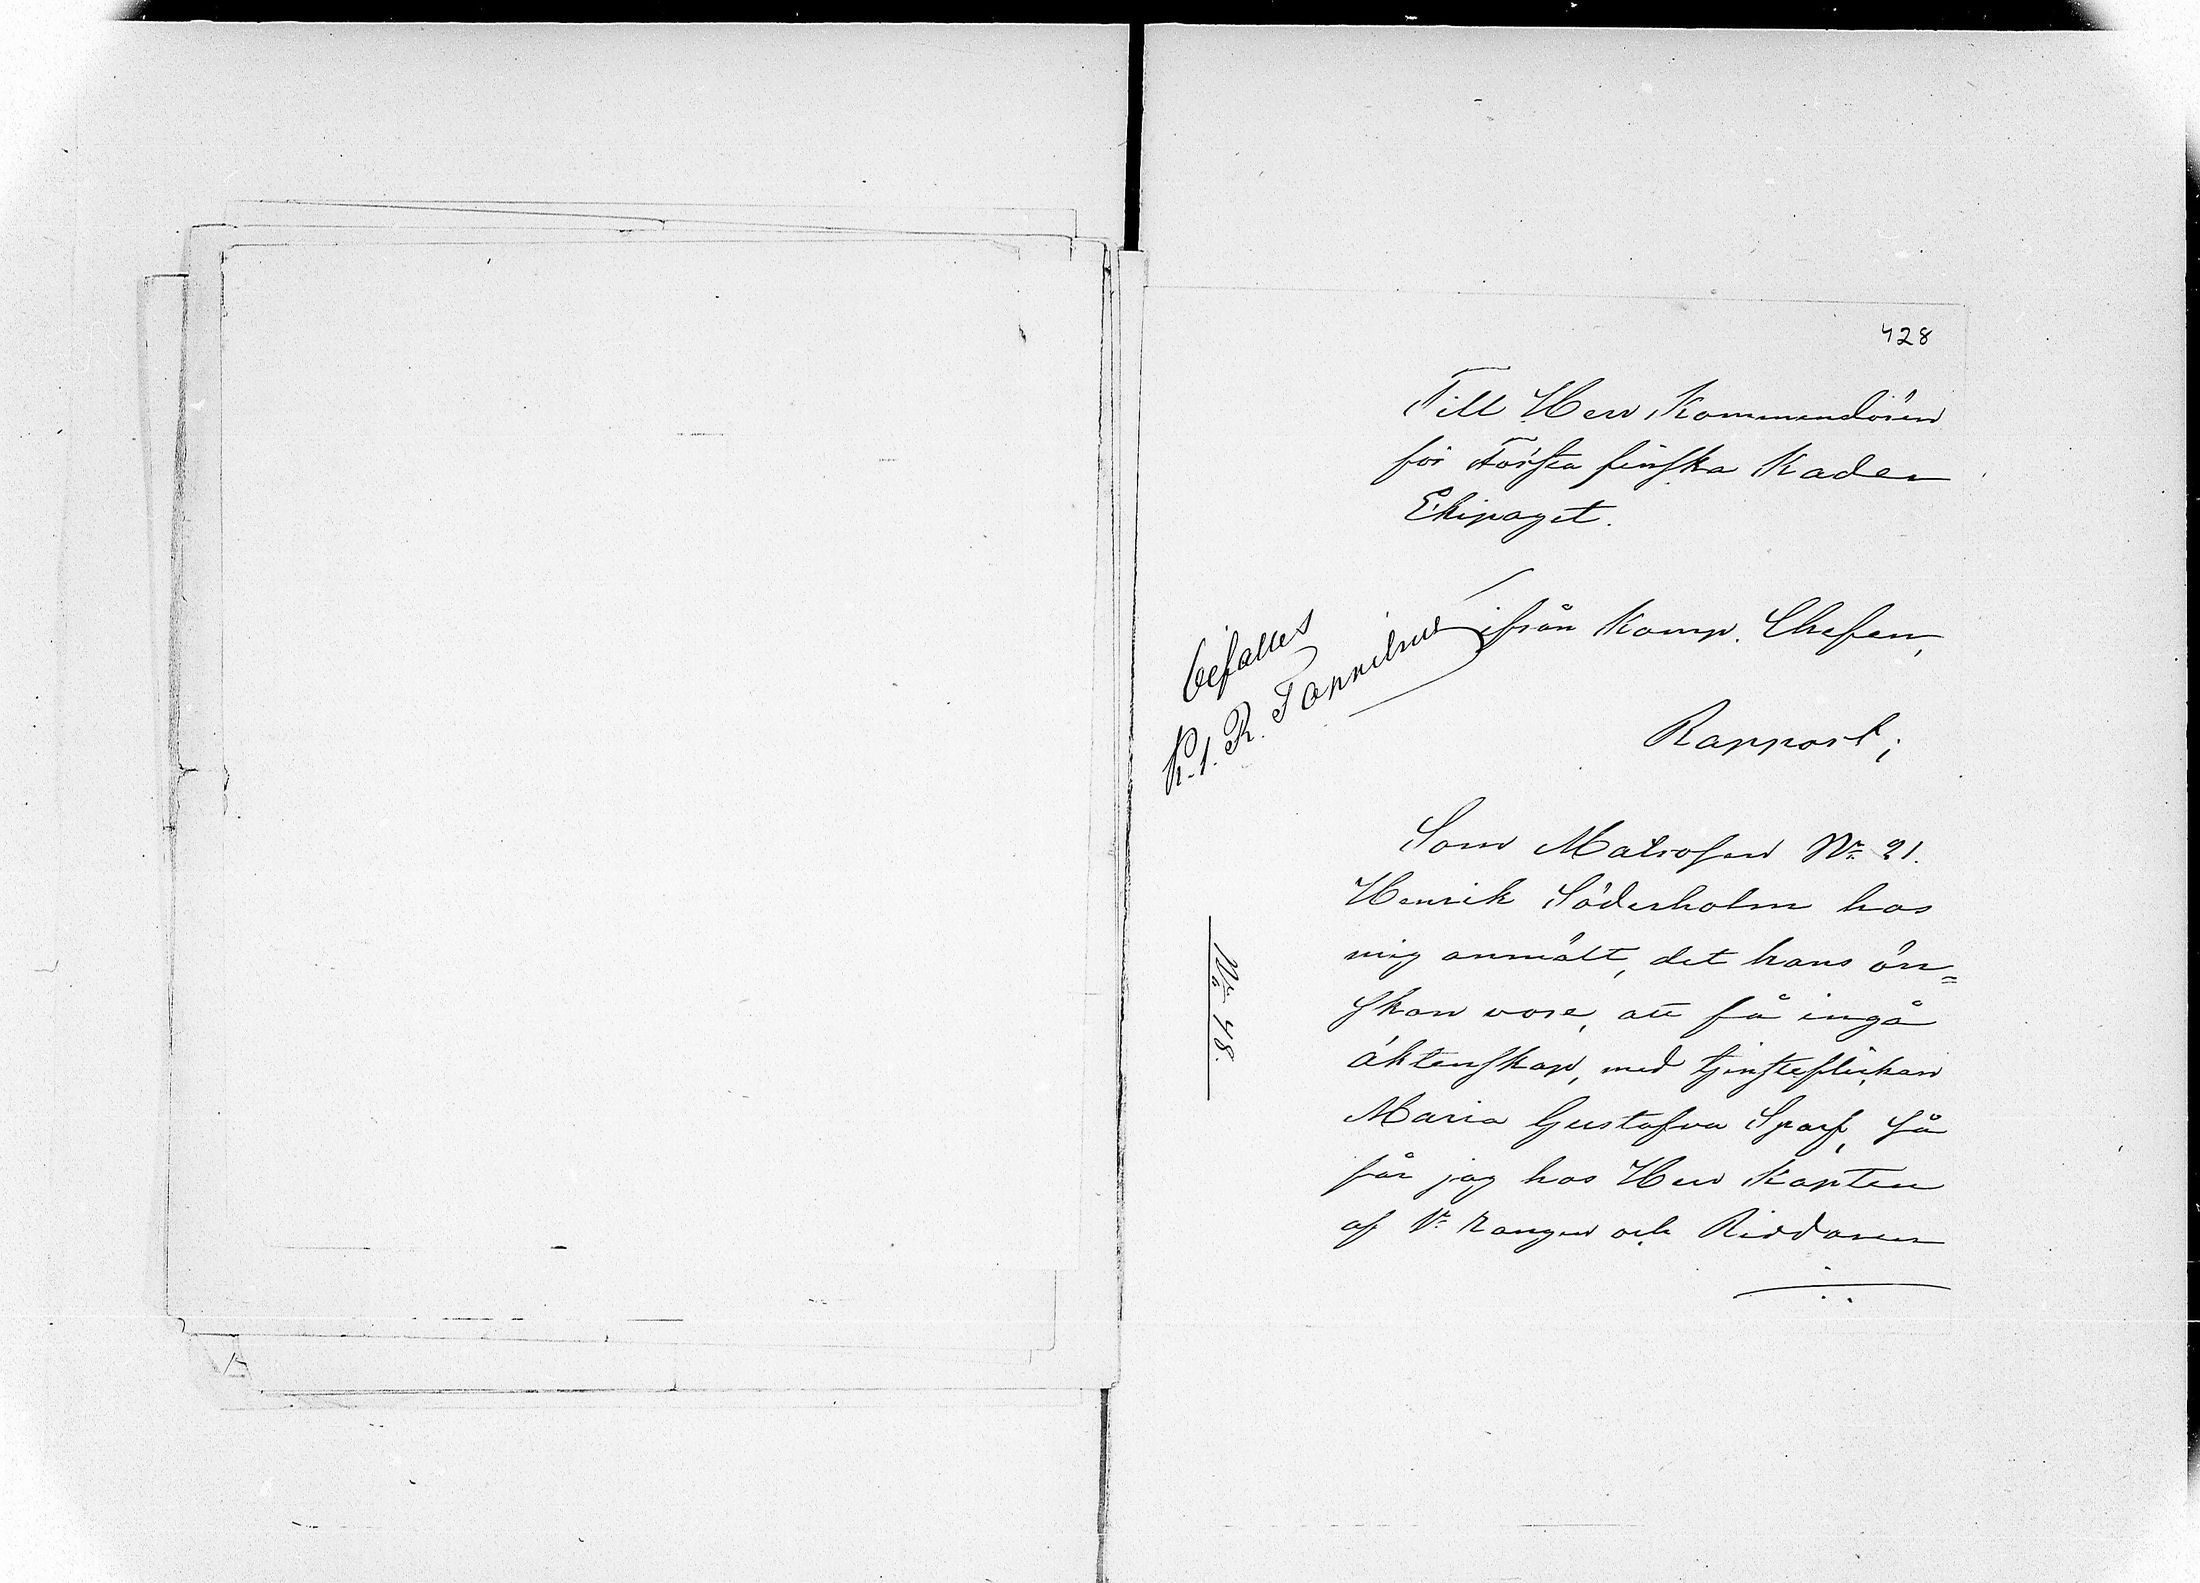 428
Till Herr Kommendören
för Första finska Kader
Ekipaget.
ifrån Komp. Chefen,
Rapport;
bifalles
Som Matrosen No 21.
Henrik Söderholm hos
mig anmält, det hans ön=
skan vore, att få ingå
äktenskap, med tjensteflickan
Maria Gustafva Sparf, så
får jag hos Herr Kapten
af 1a rangen och Riddaren
No 48.